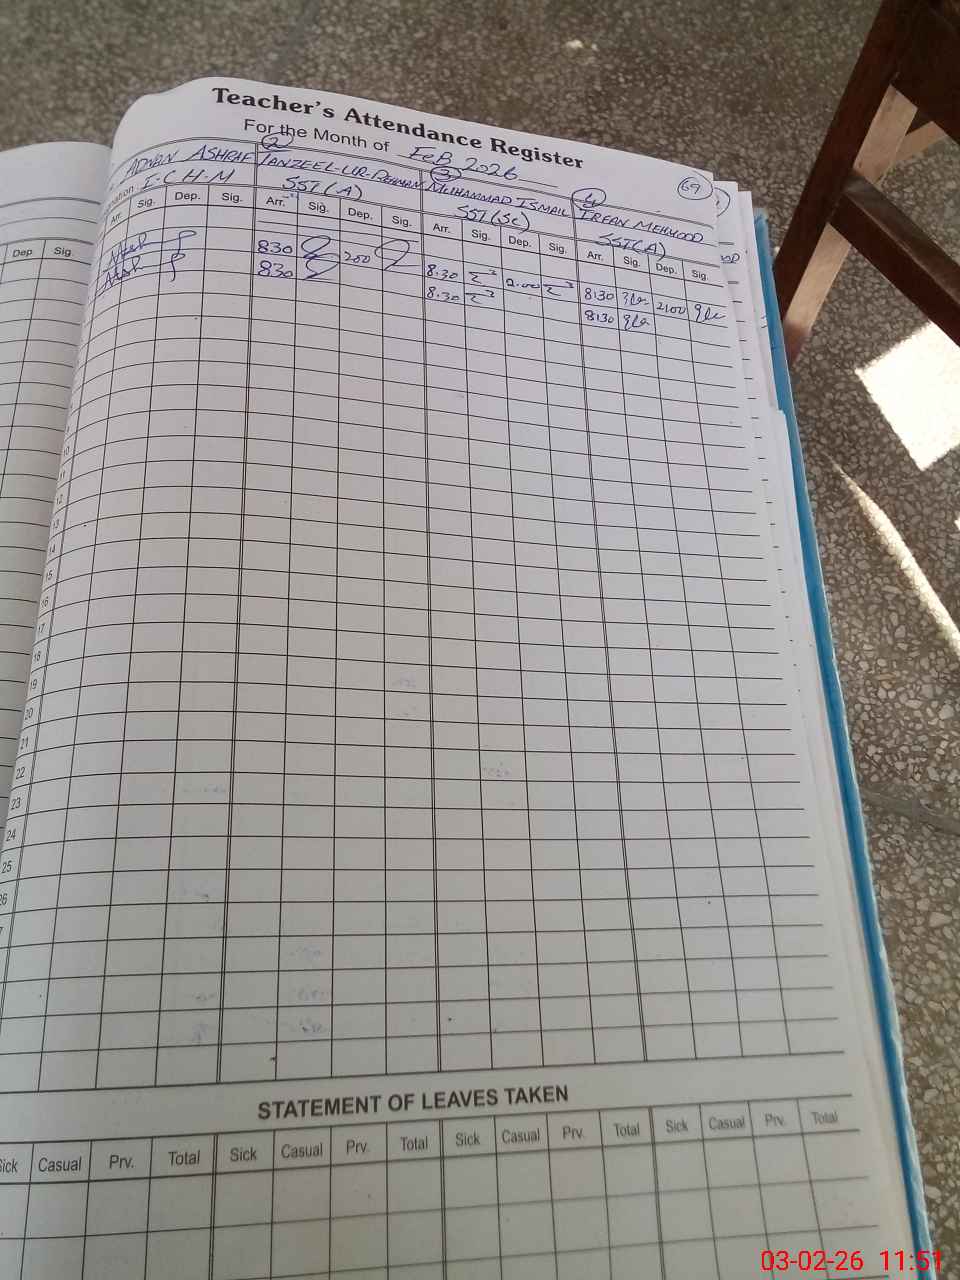 Teacher's Attendance Register
For the Month of FEB 2026
69
2 3 4
ADNAN ASHRAF TANZEEL-UR-REHMAN MUHAMMAD ISMAIL IRFAN MEHMOOD
I.C H.M SST(A) SST(Sc) SST(A)
Dep. Sig. Arr. Sig. Dep. Sig. Arr. Sig. Dep. Sig. Arr. Sig. Dep. Sig. Arr. Sig. Dep. Sig.
830 200 8.30 2.00 8:30 2:00
830 8.30 8:30
10
11
12
13
14
15
16
17
18
19
20
21
22
23
24
25
26
STATEMENT OF LEAVES TAKEN
Sick Casual Prv. Total Sick Casual Prv. Total Sick Casual Prv. Total Sick Casual Prv. Total
03-02-26 11:51